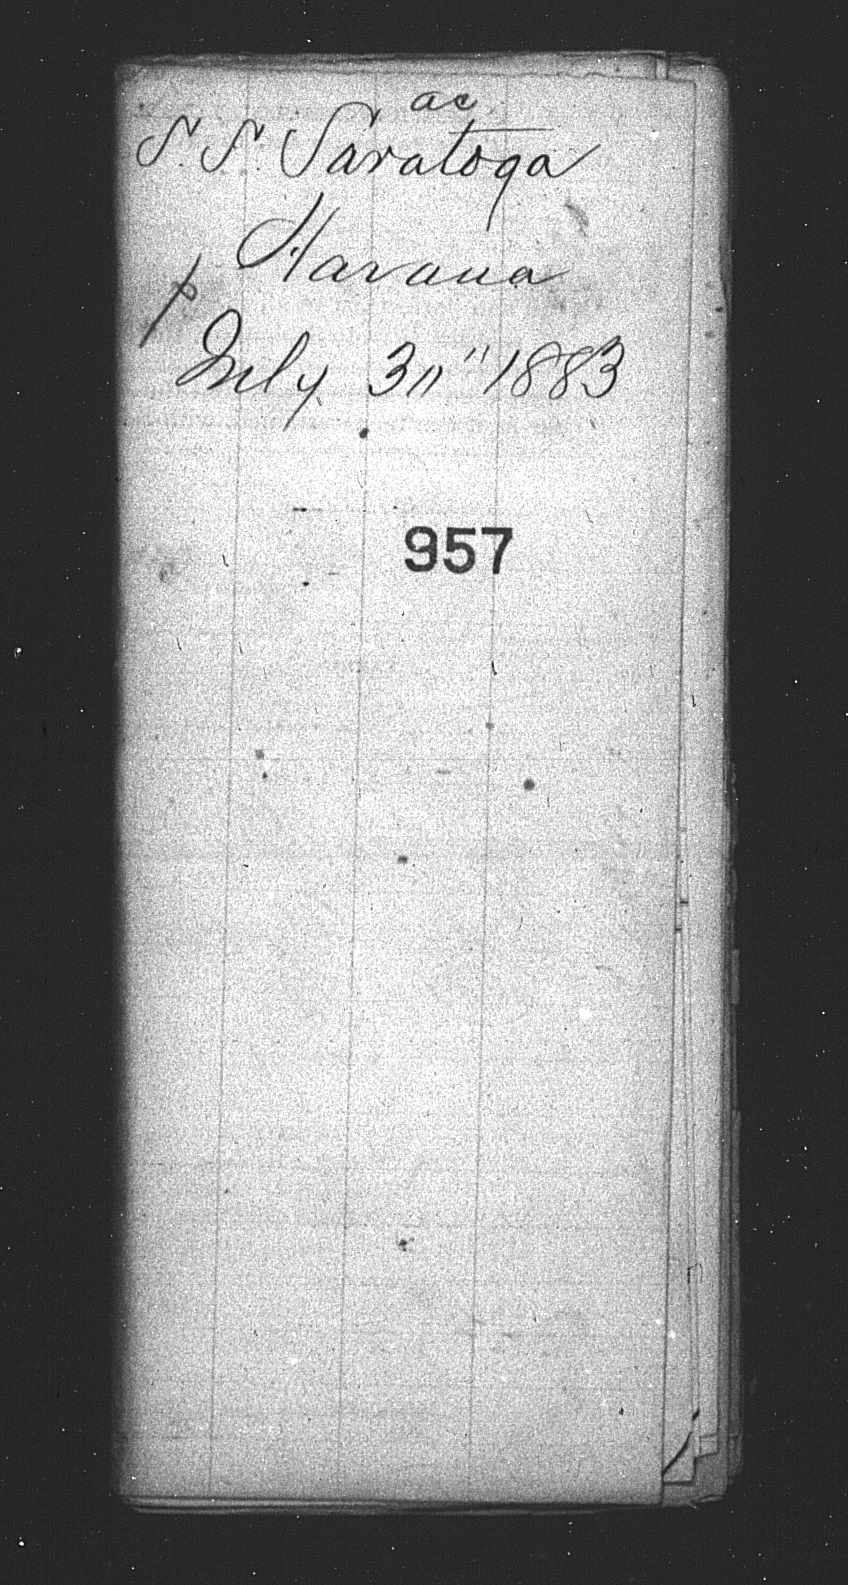 ac
S. S. Saratoga
Havana
July 30" 1883
957